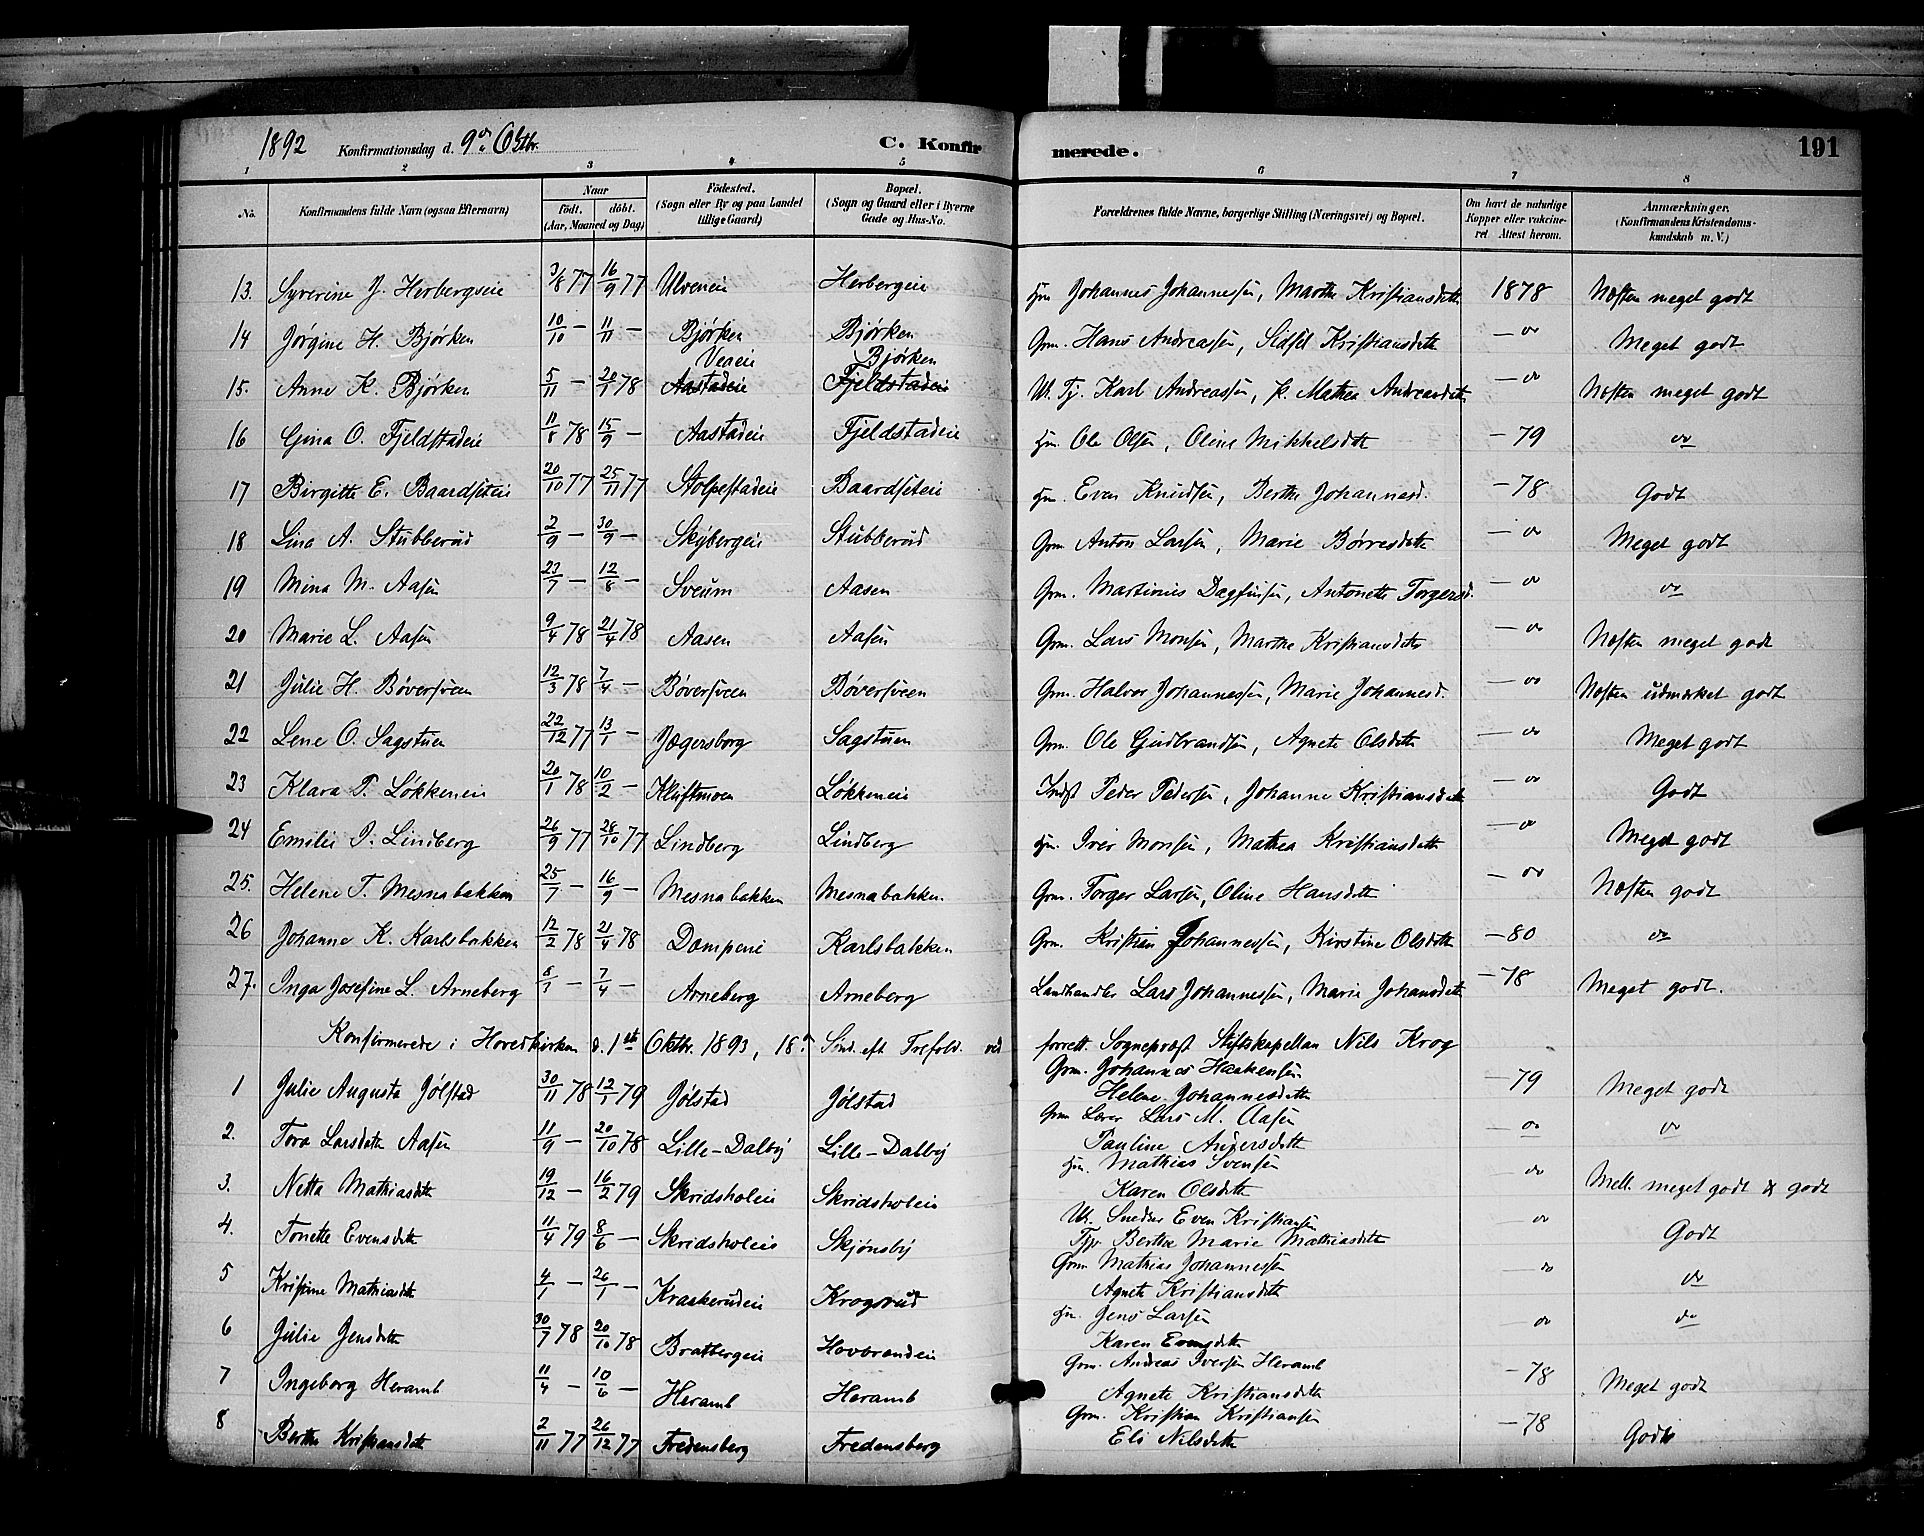 1892 Konfirmationsdag d. 9de Oktbr. C. Konfirmerede. 191
1 2 3 4 5 6 7 8
No. Konfirmandens fulde Navn (ogsaa Efternavn) Naar født. døbt. (Aar, Maaned og Dag) Fødested. (Sogn eller By og paa Landet tillige Gaard) Bopæl. (Sogn og Gaard eller i Byerne Gade og Hus-No. Forældrenes fulde Navne, borgerlige Stilling (Næringsvei) og Bopæl. Om havt de naturlige Kopper eller vakcineret Attest herom. Anmærkninger. (Konfirmandens Kristendomskundskab m. V.)
13. Syverine J. Herbergseie 3/8 77 16/9 77 Ulveneie Herbergeie Hm Johannes Johannessen, Marthe Kristiansdatt 1878 Næsten meget godt
14 Jørgine H. Bjørken 10/10 — 11/11 — Bjørken Bjørken Grm. Hans Andreassen, Sidsel Kristiansdatt — do Meget godt
Veaeie Bjørken
15. Anne K. Bjørken 5/11 — 20/1 78 Aastadeie Fjeldstadeie U. Tj. Karl Andreassen, p. Mathea Andreasdatt — do Næsten meget godt
16 Gina O. Fjeldstadeie 11/8 78 15/9 — Aastadeie Fjeldstadeie Hm. Ole Olsen, Oline Mikkelsdatt — 79 do
17 Birgitte E. Baardseteie 20/10 77 25/11 77 Stolpestadeie Baardseteie Hm. Even Knudsen, Berthe Johannesd. — 78 Godt
18 Lina A. Stubberud 2/9 — 30/9 — Skybergeie Stubberud Grm Anton Larsen, Marie Børresdatt — do Meget godt
19 Mina M. Aasen 23/7 — 12/8 — Sveum Aasen Grm. Martinius Dagfinsen, Antonette Torgersd. — do do
20 Marie L. Aasen 9/4 78 21/4 78 Aasen Aasen Grm. Lars Monsen, Marthe Kristiansdatt — do Næsten meget godt
21 Julie H. Bøversveen 12/3 78 7/4 — Bøversveen Bøversveen Grm. Halvor Johannessen, Marie Johannesd. — do Næsten udmærket godt
22 Lene O. Sagstuen 22/12 77 13/1 — Jægersborg Sagstuen Grm. Ole Gudbrandsen, Agnete Olsdatt — do Meget godt
23 Klara P. Løkkeneie 20/1 78 10/2 — Kluftmoen Løkkeneie Indst Peder Pedersen, Johanne Kristiansdatt — do Godt
24 Emilie I. Lindberg 26/9 77 28/10 77 Lindberg Lindberg Hm. Iver Monsen, Mathea Kristiansdatt — do Meget godt
25. Helene T. Mesnabakken 25/7 — 16/9 — Mesnabakken Mesnabakken. Grm. Torger Larsen, Oline Hansdatt — do Næsten godt
26 Johanne K. Karlsbakken 12/2 78 21/4 78 Dæmpeeie Karlsbakken Grm. Kristian Johannessen, Kirstine Olsdatt — 80 do
27. Inga Josefine L. Arneberg 8/1 — 7/4 — Arneberg Arneberg Landhandler Lars Johannessen, Marie Johansdatt — 78 Meget godt.
Konfirmerede i Hovedkirken d. 1ste Oktbr. 1893, 18de Sønd. eft Trefold. ved forrett. Sognepræst Stiftskapellan Nils Krog
1 Julie Augusta Jølstad 30/11 78 12/1 79 Jølstad Jølstad Grm. Johannes Haakensen Helene Johannesdatt — 79 Meget godt
2. Tora Larsdatt Aasen 11/9 — 20/10 78 Lille-Dalby Lille-Dalby Grm Lærer Lars M. Aasen Pauline Andersdatt — do do
3. Netta Mathiasdatt 19/12 — 16/2 79 Skridsholeie Skridsholeie Hm. Mathias Svensen Karen Olsdatt — do Mell. meget godt & godt
4. Tonette Evensdatt 11/4 79 8/6 — Skridsholeie Skjønsby U. Snedker Even Kristiansen Tjp Berthe Marie Mathiasdatt — do Godt
5 Kristine Mathiasdatt 4/1 — 26/1 — Kraakerudeie Krogsrud Grm Mathias Johannessen Agnete Kristiansdatt — do do
6 Julie Jensdatt 30/7 78 20/10 78 Bratbergeie Hovbrandeie Hm. Jens Larsen Karen Evensdatt — do do
7 Ingeborg Heramb 11/4 — 10/6 — Heramb Heramb Grm. Andreas Iversen Heramb Agnete Kristiansdatt — 78 Meget godt
8 Berthe Kristiansdatt 2/11 77 26/12 77 Fredensberg Fredensberg Grm. Kristian Kristiansen Eli Nilsdatt — 78 Godt